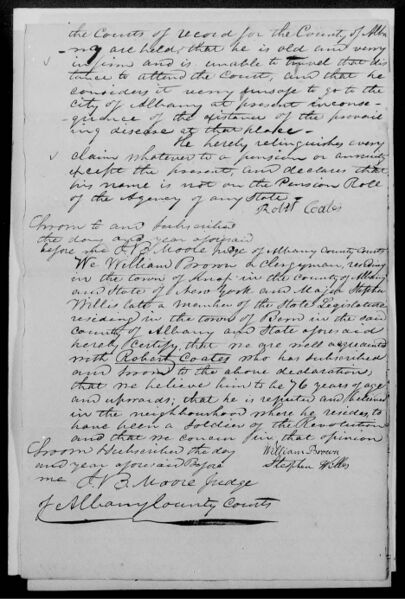 the Courts of record for the County of Alba
ny are held; that he is old and very
infirm and is unable to travel that dis
tance to attend the Court, and that he
considers it very unsafe to go to the
city of Albany at present in conse-
quence of the existence of the prevail
ing disease at that place.-
He hereby relinquishes every
claim whatever to a pension or annuity
except the present, and declares that
his name is not on the Pension Roll
of the Agency of any State.
Robt Coates
Sworn to and Subscribed
the day and year aforesaid
before me J. B. Moore Judge of Albany County Courts
We William Brown a Clergyman, residing
in the town of in the County of Albany
and State of New York and Major Stephen
Willis late a member of the State Legislature
residing in the town of Bern in the said
County of Albany and State aforesaid
hereby Certify, that we are well acquainted
with Robert Coates who has subscribed
and sworn to the above declaration,
that we believe him to be 76 years of age
and upwards; that he is reputed and believed
in the neighbourhood where he resides to
have been a Soldier of the Revolution
and that we concur in that opinion
Sworn & subscribed the day
William Brown
and year aforesaid before
Stephen Willis
me J. B. Moore Judge
of Albany County Courts